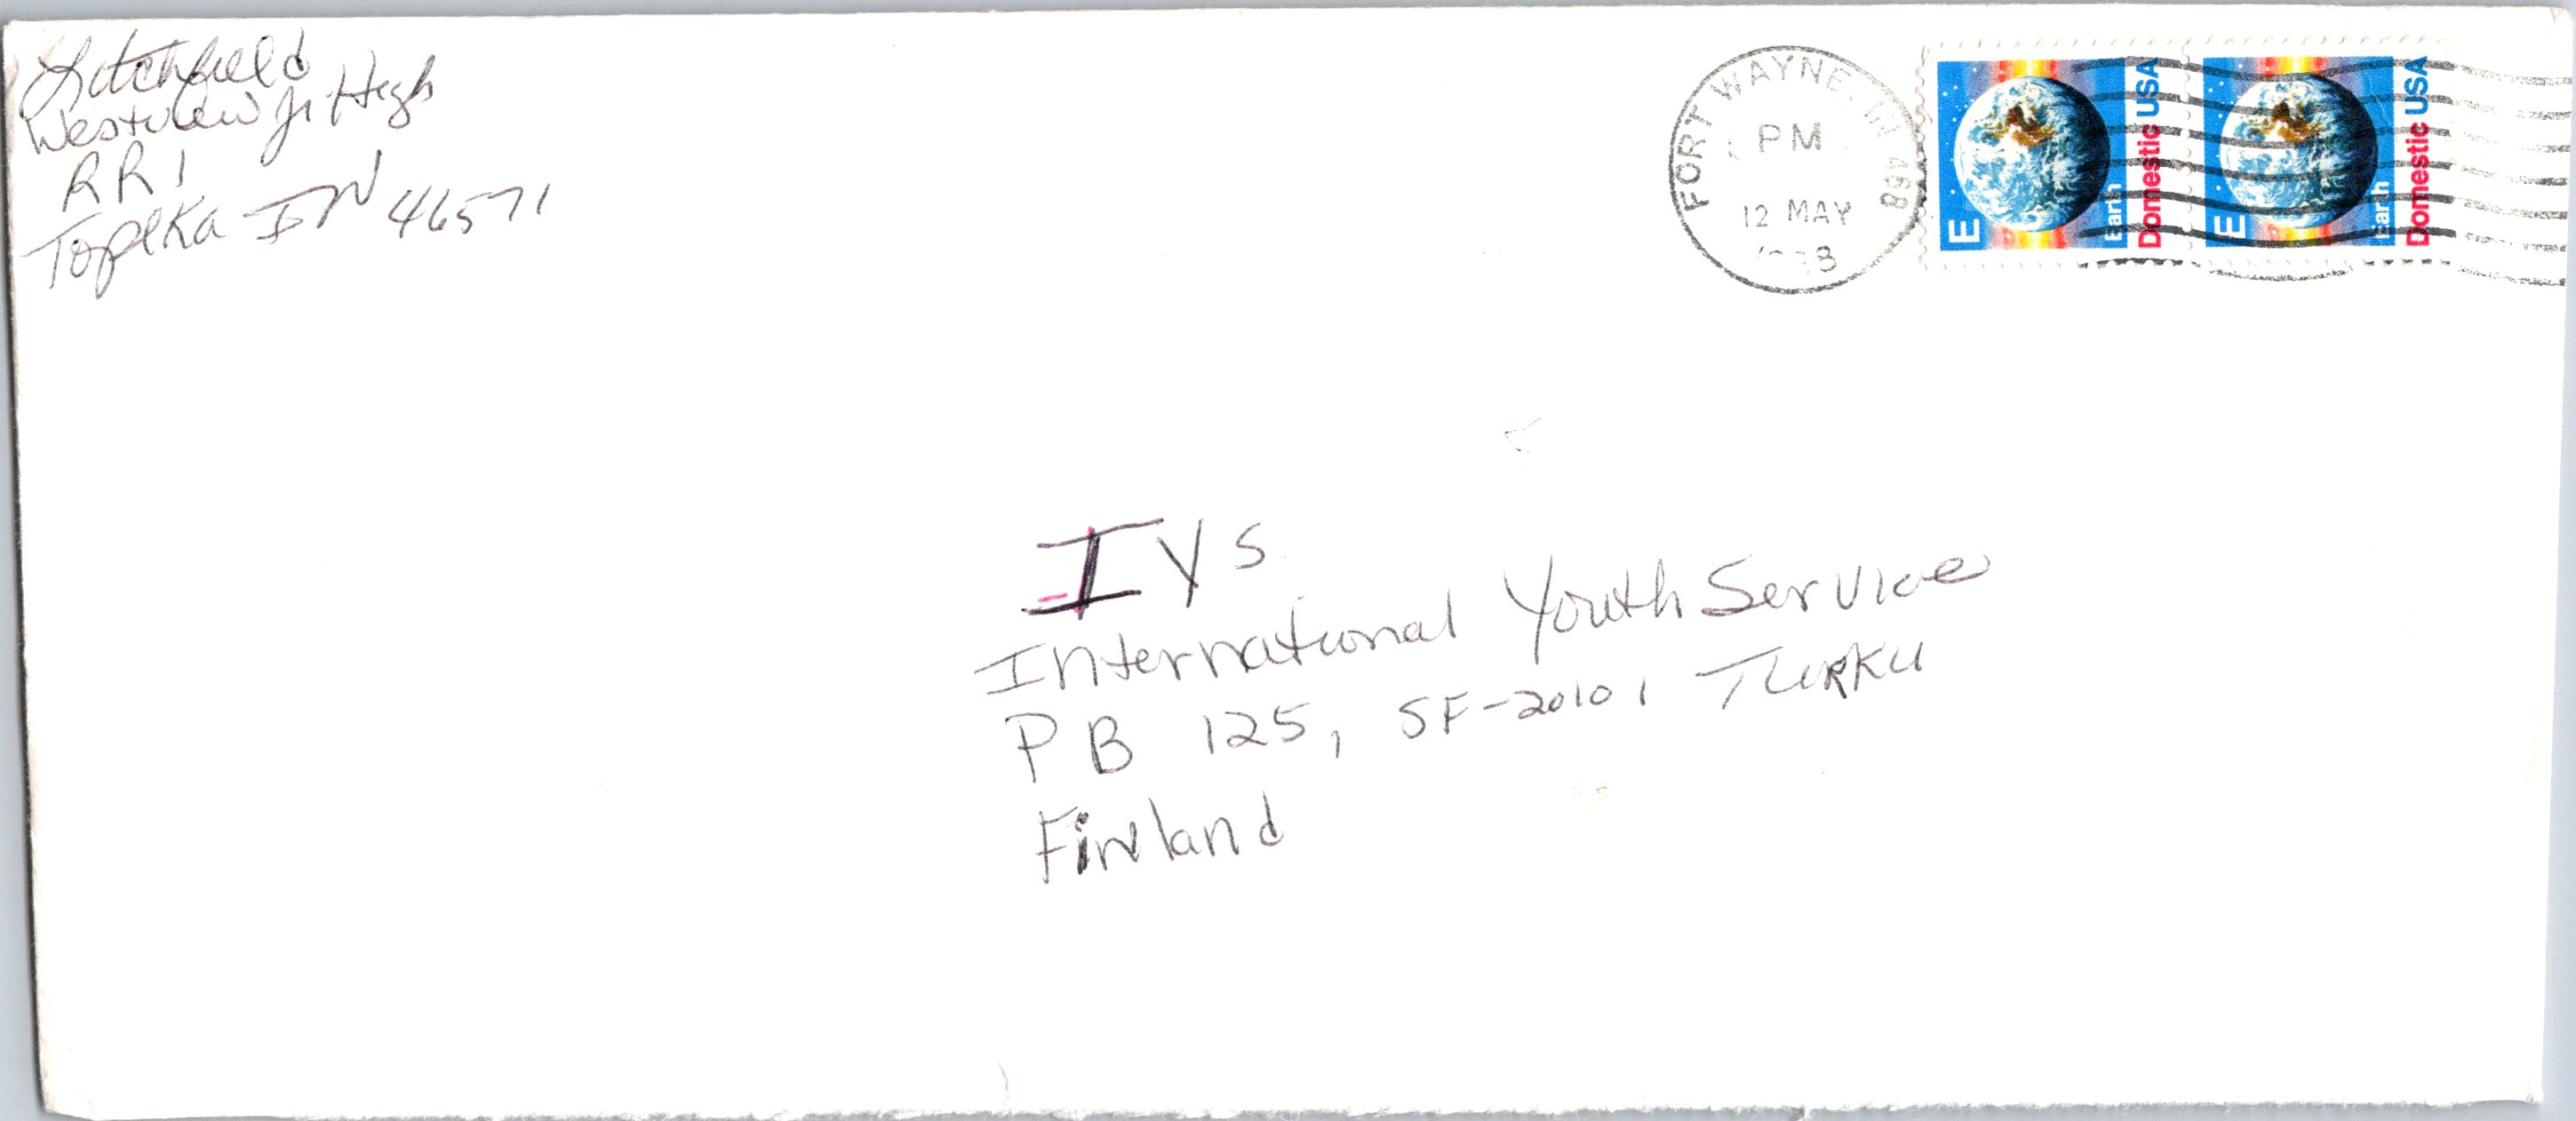 Litchfield
Westview Jr High
RR 1
Topeka IN 46571
FORT WAYNE, IN 468
PM
12 MAY
E
Earth
Domestic USA
E
Earth
Domestic USA
IYS
International Youth Service
PB 125, SF-20101 TURKU
Finland